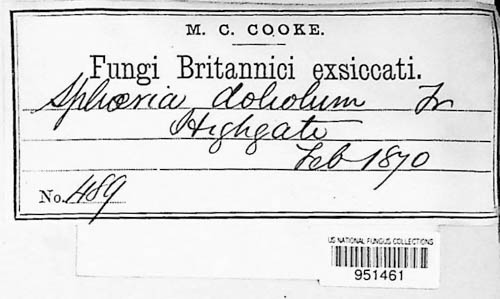 M. C. COOKE.
Fungi Britannici exsiccati.
Sphæria doliolum Fr
Highgate
Feb 1870
No. 489
US NATIONAL FUNGUS COLLECTIONS
951461